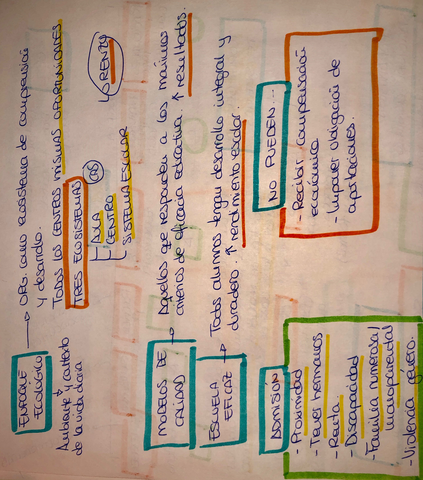 ENFOQUE
ECOLÓGICO
Ambiente y contexto
de la vida diaria
OEs como ecosistema de comprensión
y desarrollo.
Todos los centros mismas oportunidades
TRES ECOSISTEMAS
AULA
CENTRO
SISTEMA ESCOLAR
LORENZO
MODELOS DE
CALIDAD
Aquellos que responden a los máximos
criterios de eficacia educativa. ↑ resultados.
ESCUELA
EFICAZ
Todos alumnos tengan desarrollo integral y
duradero. ↑ rendimiento escolar.
ADMISIÓN
- Proximidad
- Tener hermanos
- Renta
- Discapacidad
- Familia numerosa/
monoparental
- Violencia género.
NO PUEDEN...
- Recibir compensación
económica
- Imponer obligación de
aportaciones.